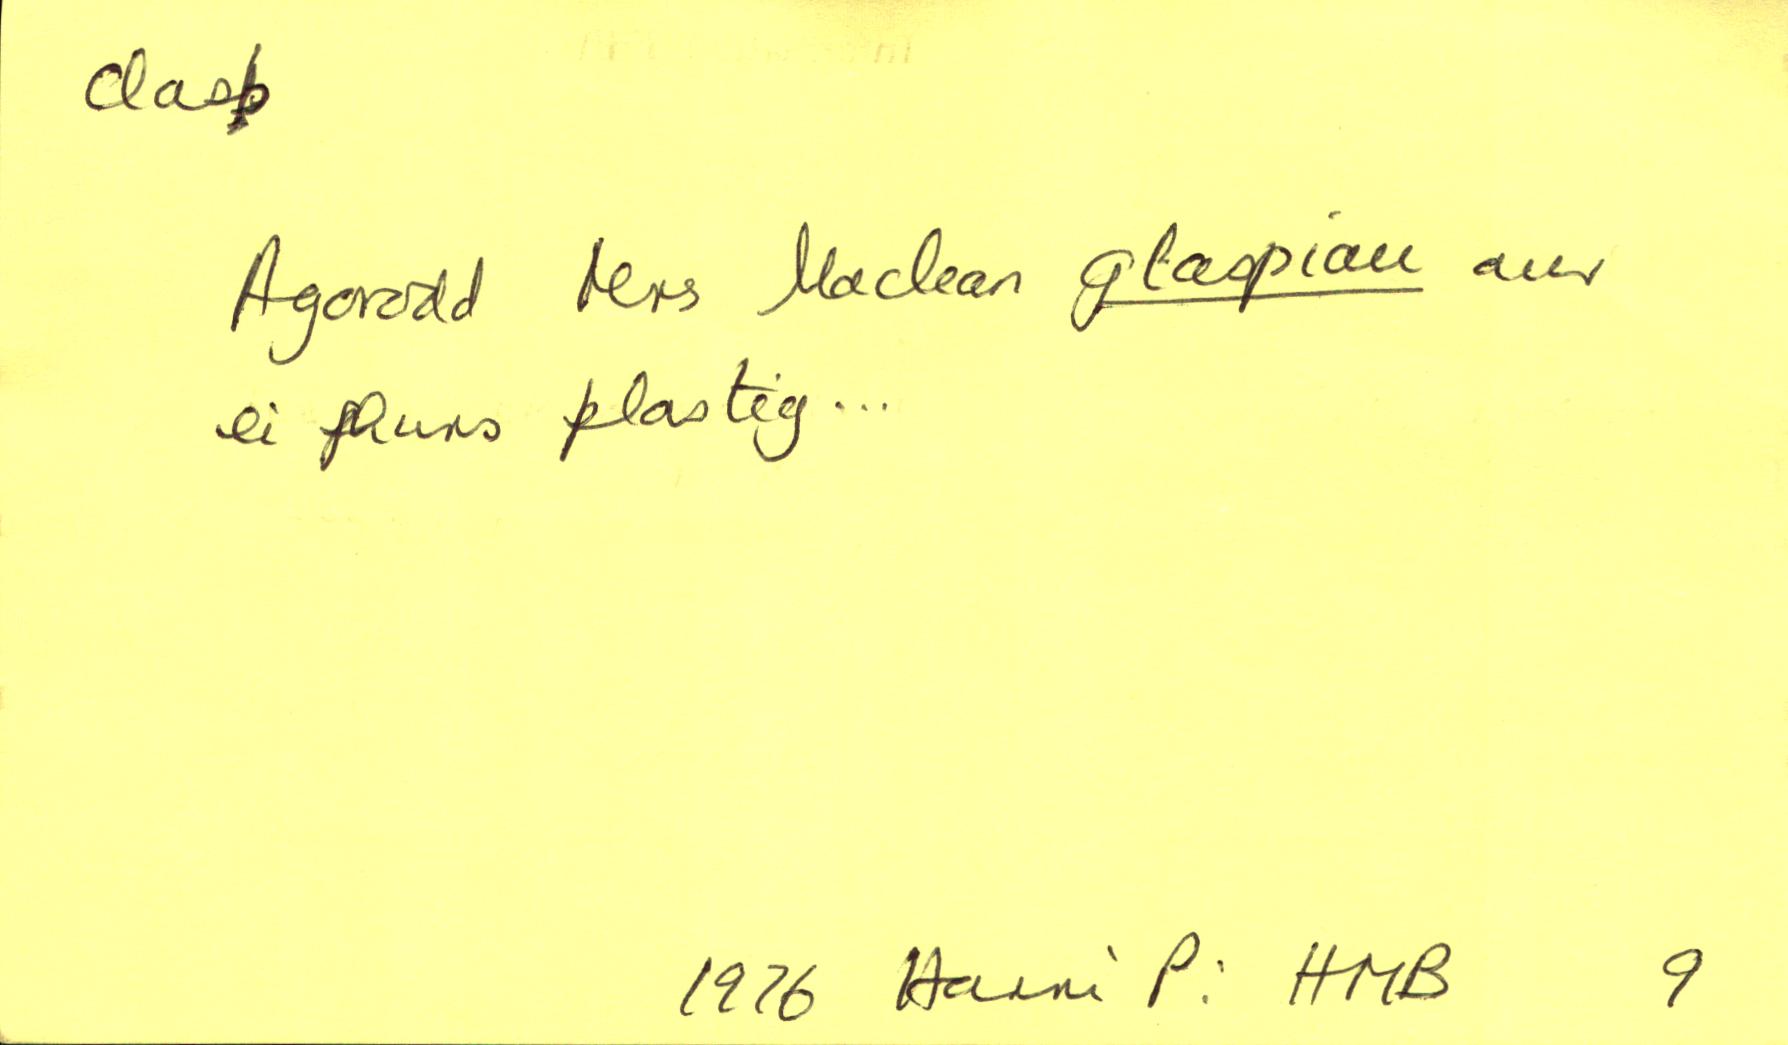 clasb
Agorodd Mrs Maclean glaspiau aur
ei phwrs plastig...
1976 Harri P: HMB 9